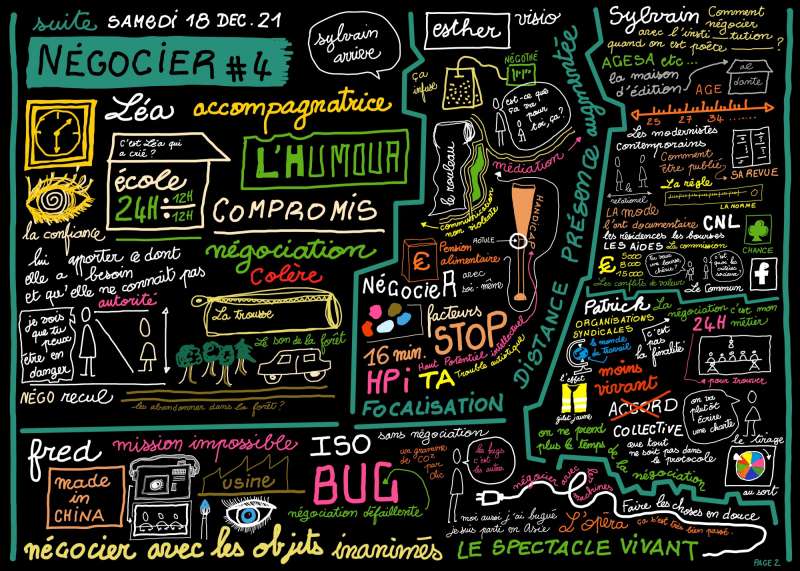 suite SAMEDI 18 DEC. 21
NÉGOCIER #4
sylvain
arrive
Léa accompagnatrice
C'est Léa qui
a crié?
école
24H: 12H
: 12H
L'HUMOUR
COMPROMIS
la confiance
négociation
Colère
lui apporter ce dont
elle a besoin
et qu'elle ne connaît pas
autorité
je vois
que tu
peux
être en
danger
NÉGO recul
La Trousse
Le son de la forêt
les abandonner dans la forêt?
esther visio
ça
infuse
NÉGOTHÉ
est-ce que
ça va
pour
toi, ça?
le rouleau
communication
non violente
médiation
HANDICAP
ROTULE
€ Pension
alimentaire
NÉGOCIER avec
soi-même
facteurs
STOP
16 min.
Haut Potentiel intellectuel
HPi TA Trouble autistique
FOCALISATION
DISTANCE PRÉSENCE augmentée
Sylvain Comment
négocier
avec l'insti tution
quand on est poète ?
AGESA etc...
la maison
d'édition
AGE
aé
dante
25 27 34 ......
Les modernistes
contemporains
Comment
être publié,
... SA REVUE
le
relationnel
La règle
LA NORME
LA MODE
l'art documentaire CNL
les résidences les bourses
LES AIDES La commission
CHANCE
€ 5000
8000
15000
Les conflits de valeur
Le Commun
f
Patrick La
négociation c'est mon
métier
ORGANISATIONS
SYNDICALES
24H
le monde
du travail
c'est
pas la
finalité
pour trouver
l'effet
gilet jaune
moins
vivant
ACCORD
COLLECTIVE
on va
plutôt
écrire
une charte
on ne prend
plus le temps de la négociation
que tout
ne soit pas dans
le protocole
le tirage
au sort
fred mission impossible
made
in
CHINA
usine
ISO
BUG
sans négociation
un gramme
de CO2
par
clic
négociation défaillente
les bugs
c'est
les autres
négocier avec
machines
moi aussi j'ai bugué
je suis parti en Asie
Faire les choses en douce
L'opéra ça s'est très bien passé.
négocier avec les objets inanimés LE SPECTACLE VIVANT
PAGE 2